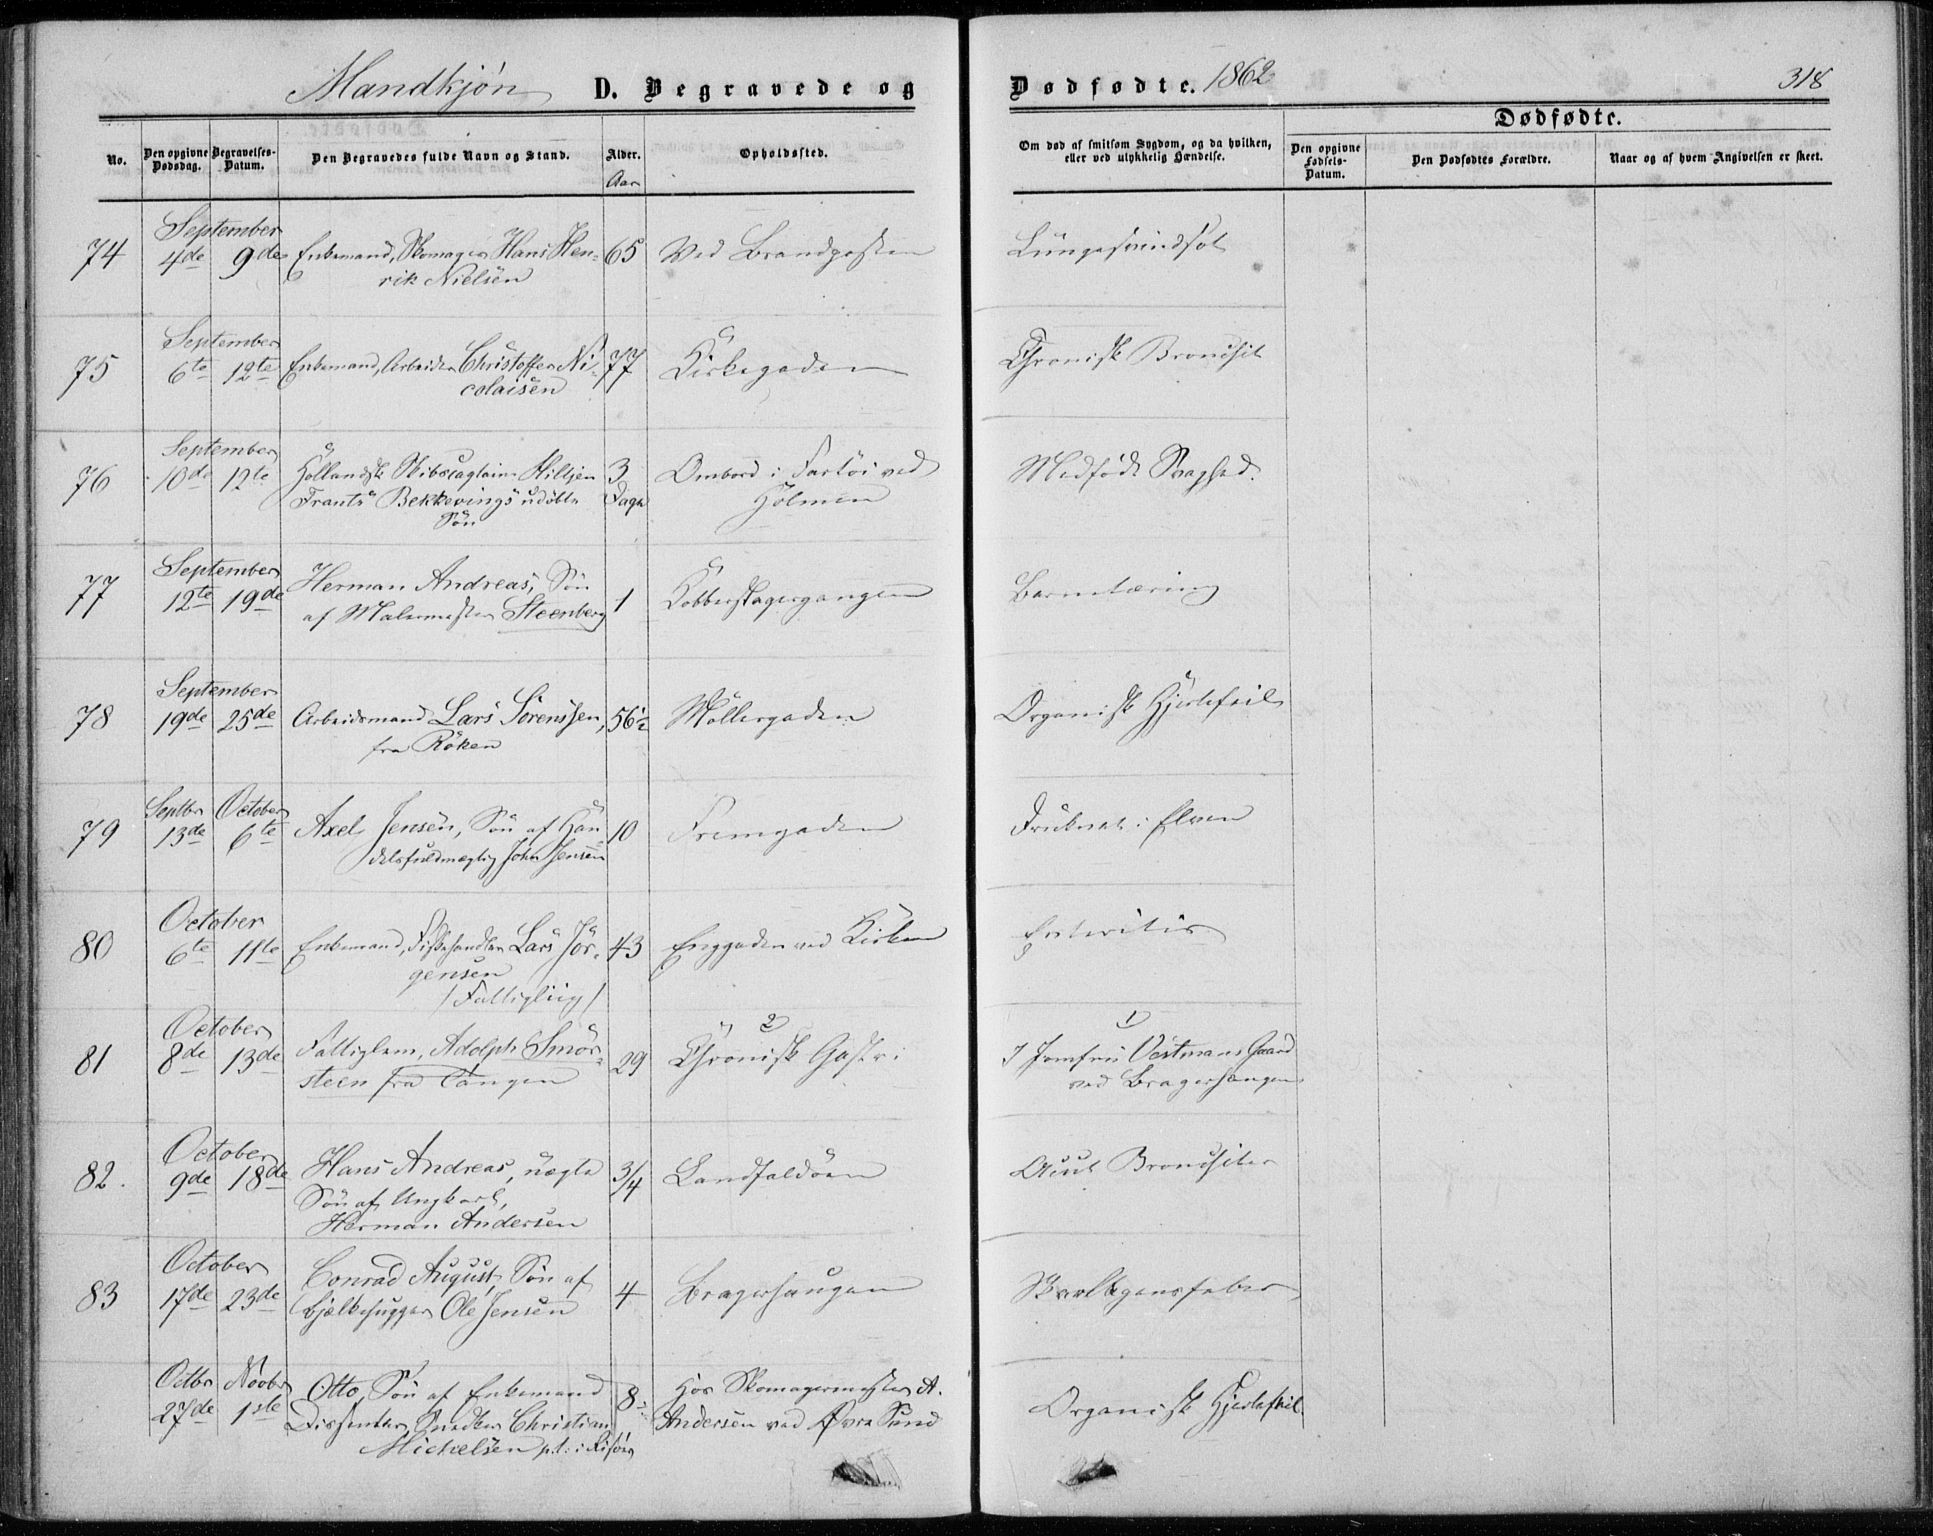 Mandkjøn D. Begravede og
Dødfødte. 1862 318
No.
Den opgivne Dødsdag.
Begravelses-Datum.
Den Begravedes fulde Navn og Stand.
Alder.
Aar
Opholdssted.
Om død af smitsom Sygdom, og da hvilken,
eller ved ulykkelig Hændelse.
Dødfødte.
Den opgivne Fødsels-Datum.
Den Dødfødtes Forældre.
Naar og af hvem Angivelsen er skeet.
September
74 4de 9de Enkemand, Skomager Hans Hen- 65 Ved Brandposten Lungesvindsot
rik Nielsen
September
75 6te 12te Enkemand, Arbeider Christoffer Ni- 77 Kirkegaden Chronisk Bronchit
colaisen
September
76 10de 12te Hollandsk Skibscaptain Hiltjen 3 Ombord i Fartøi ved Medfødt Svaghed.
Frants Bekkerings udøbte Dage Holmen
Søn
September
77 12te 19de Herman Andreas, Søn 1 Kobberslagergangen Barnetæring
af Malermester Steenberg
September
78 19de 25de Arbeidsmand Lars Sørenssen, 56½ Møllergaden Organisk Hjertefeil
fra Røken
Septbr October
79 13de 6te Axel Jensen, Søn af Han- 10 Fremgaden Druknet i Elven
delsfuldmægtig John Jensen
October
80 6te 11te Enkemand, Fiskehandler Lars Jör- 43 Enggaden ved Kirken Enteritis
gensen
/Fattigliig/
October
81 8de 13de Fattiglem, Adolph Smör- 29 2) Chronisk Gastri 1) I Jomfru Vestmans Gaard
steen fra Tangen ved Bragerhaugen
October
82. 9de 18de Hans Andreas, uægte 3/4 Landfaldøen Acut Bronchiter
Søn af Ungkarl,
Herman Andersen
October
83 17de 23de Conrad August, Søn af 4 Bragerhaugen Skarlagensfeber
Bjelkehugger Ole Jensen
Octbr Novbr
27de 1ste Otto, Søn af Enkemand 8 Hos Skomagermester A. Organisk Hjertefeil
Dissenter, Snedker Christian Andersen ved Øvre Sund
Michelsen p.t. i Risør